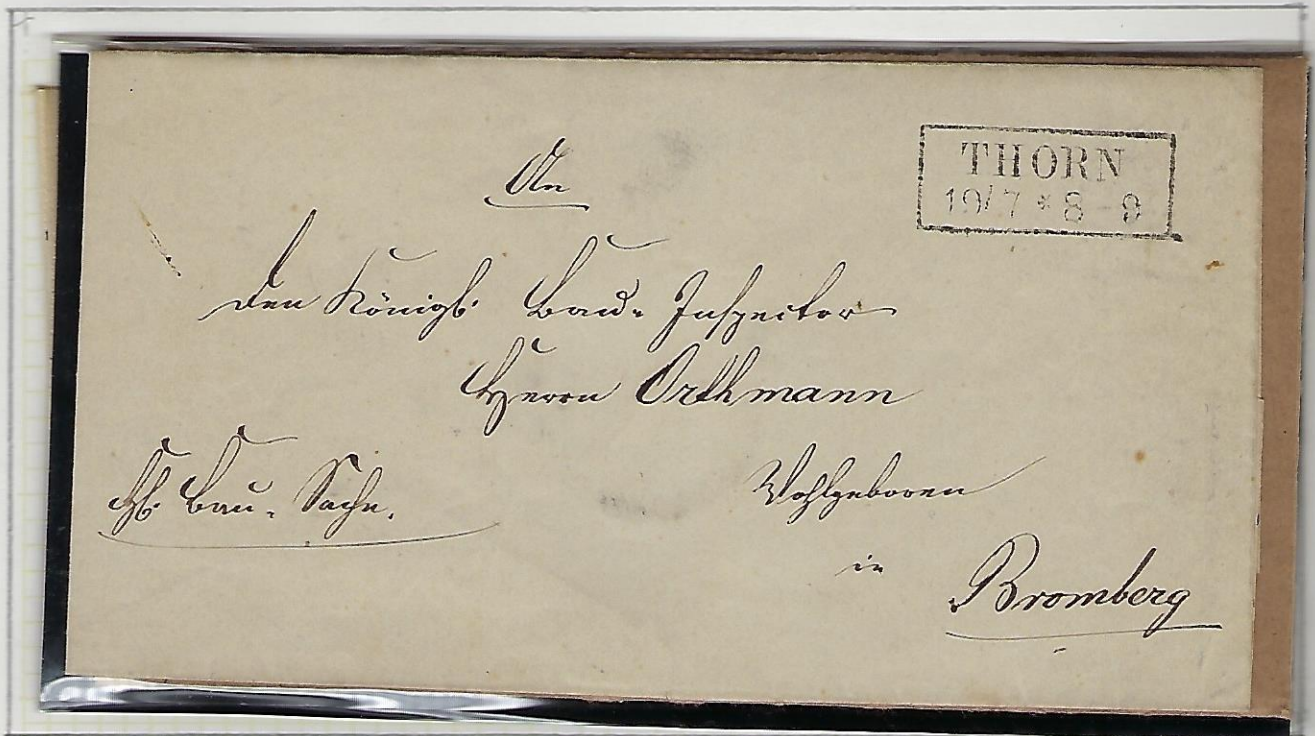 THORN
19/7 * 8-9
An
den Königl. Bau-Inspector
Herrn Orthmann
Wohlgeboren
in Bromberg
Bau-Sache.